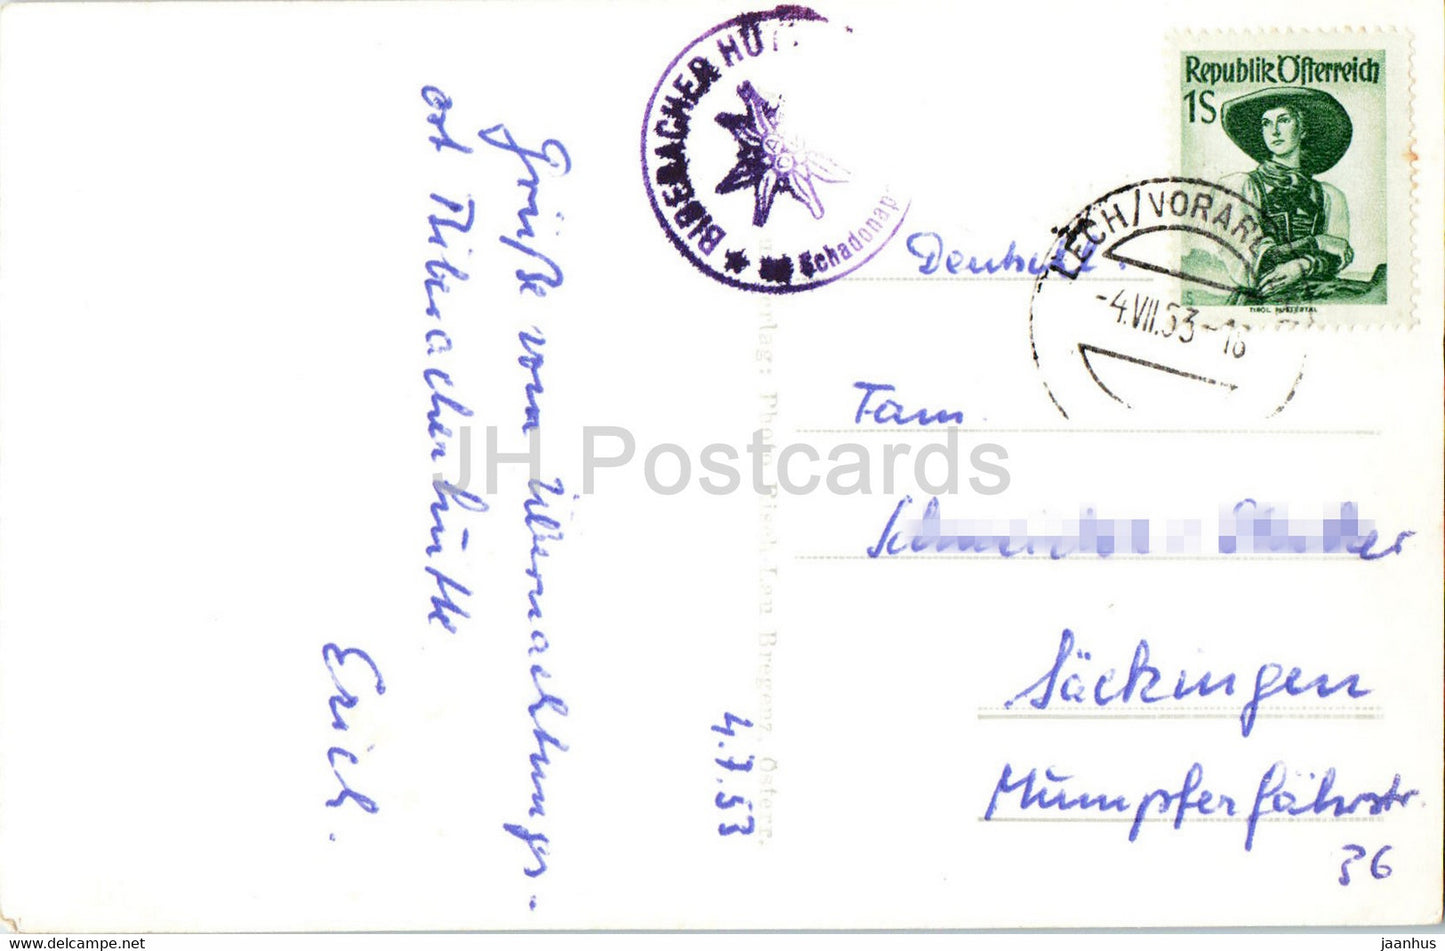 Grüße vom Übernachtungs-
ort Biberacherhütte
Erich.
4.7.53
BIBERACHER HÜT
Schadonap
Verlag: Photo Risch-Lau Bregenz, Österr.
Republik Österreich
1S
TIROL PUSTERTAL
LECH/VORARL
-4.VII.53-18
Deutschl.
Fam.
Säckingen
Mumpferfährstr.
36
JH Postcards
jaanhus – www.delcampe.net